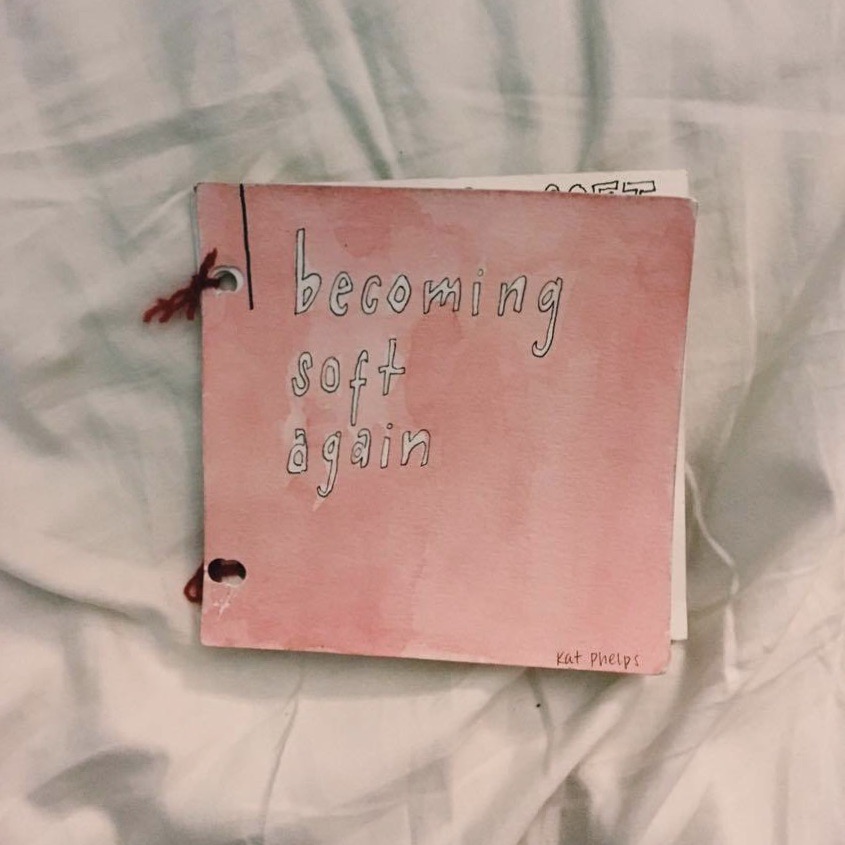 becoming
soft
again
kat phelps